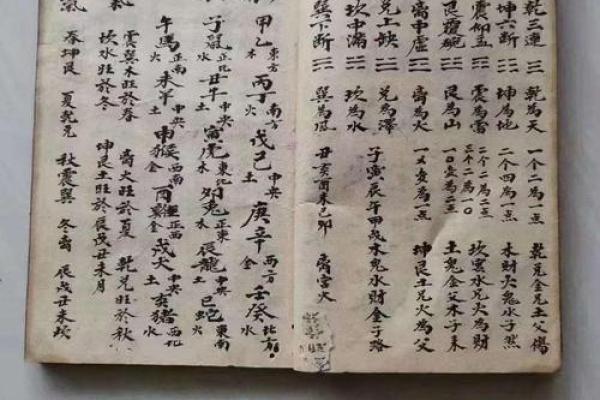 乾三連 ☰ 乾為天 一个二為一点 乾兌金兄土父傷
坤六断 ☷ 坤為地 二个四為一点 木財火鬼水子然
震仰盂 ☳ 震為雷 二个二為二点 三个三為一〇 坎宮水兄火為財
艮覆碗 ☶ 艮為山 一〇变為二点 土鬼金父木子来
离中虚 ☲ 离為火 一乂变為一点 坤艮土兄火為父
兑上缺 ☱ 兑為澤
坎中满 ☵ 坎為水 子寅辰午 戌 水財金子路
巽下断 ☴ 巽為風 丑亥酉未巳卯 离宫火
甲乙木東方 丙丁火南方 戊己土中央 庚辛金西方 壬癸水北方。
子鼠水正北 丑牛土中央 寅虎木東北 卯兔木正東 辰龍土中央 巳蛇火東南
午馬火正南 未羊土中央 申猴金西南 酉金正西 戌火土中央 亥猪水西北
震巽木旺於春 离火旺於夏 乾兑旺於秋
坎水旺於冬 坤艮土旺於辰戌丑未月
氣
春坤艮 夏乾兑 秋震巽 冬离 辰戌丑未坎